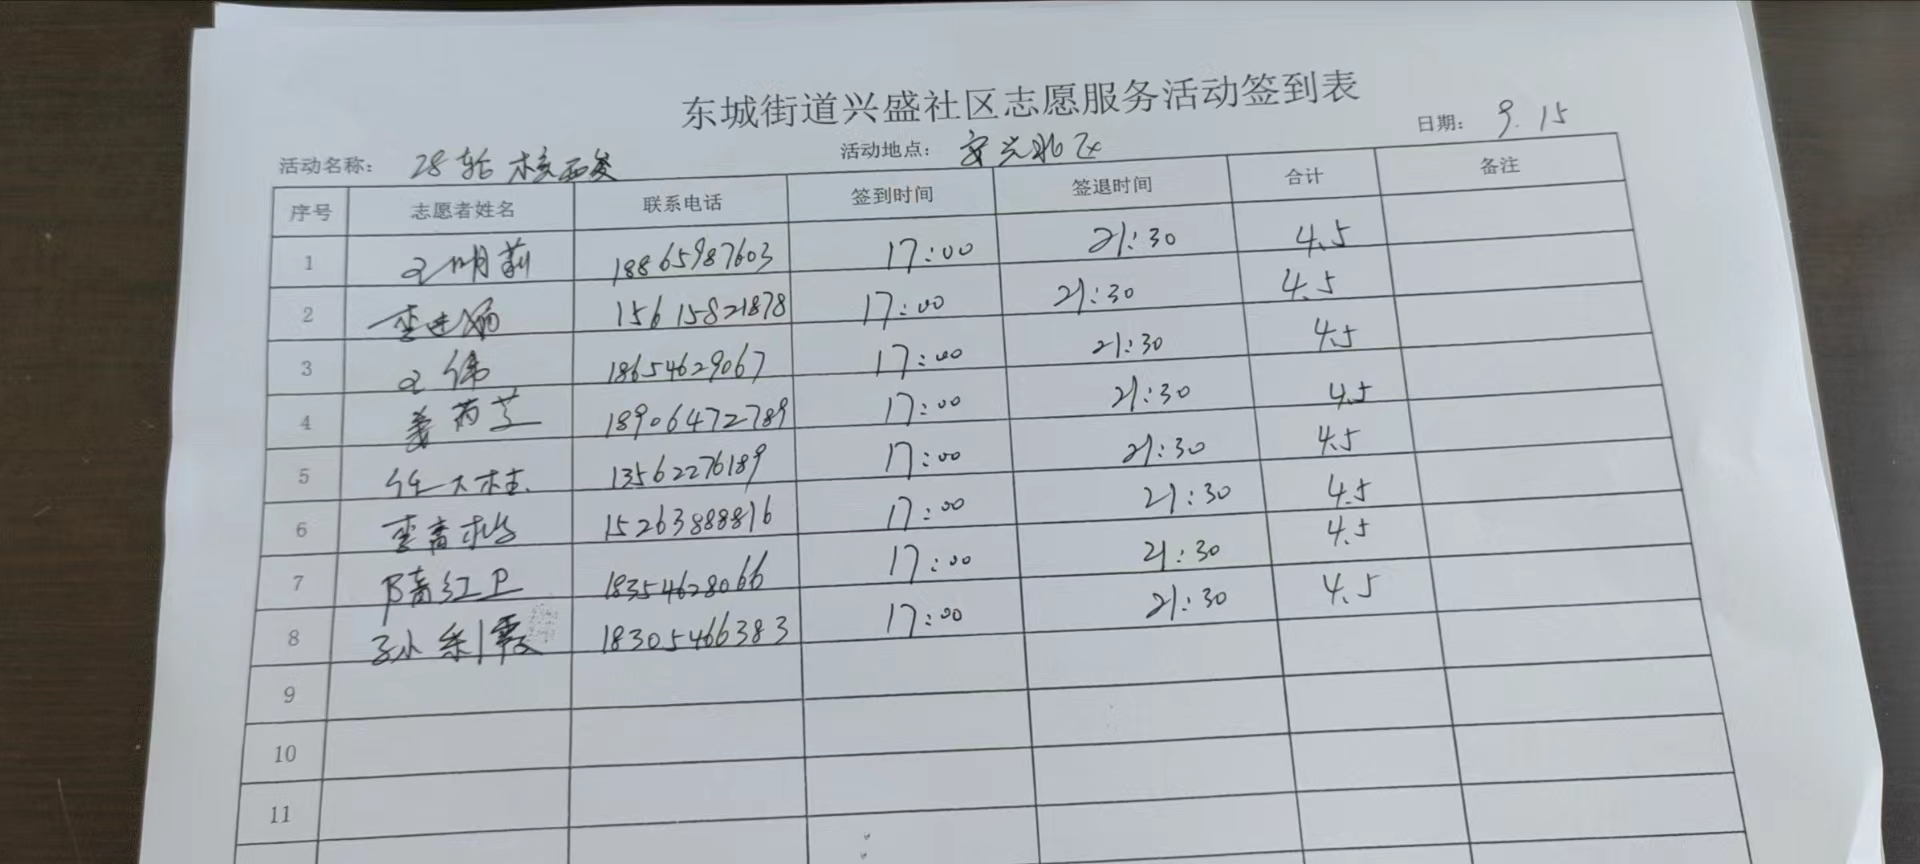 东城街道兴盛社区志愿服务活动签到表
活动名称： 28轮核酸 活动地点： 安兴北区 日期： 9.15
序号 志愿者姓名 联系电话 签到时间 签退时间 合计 备注
1 王明莉 18865987603 17:00 21:30 4.5
2 李进 15615821878 17:00 21:30 4.5
3 王伟 18654629067 17:00 21:30 4.5
4 姜芝 18906472789 17:00 21:30 4.5
5 任大桂 13562276189 17:00 21:30 4.5
6 李青 15263888816 17:00 21:30 4.5
7 隋红卫 18354628066 17:00 21:30 4.5
8 孙彩霞 18305466383 17:00 21:30 4.5
9
10
11